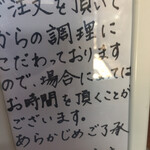 ご注文を頂いて
からの調理に
こだわっております
ので、場合によっては
お時間を頂くことが
ございます。
あらかじめご了承